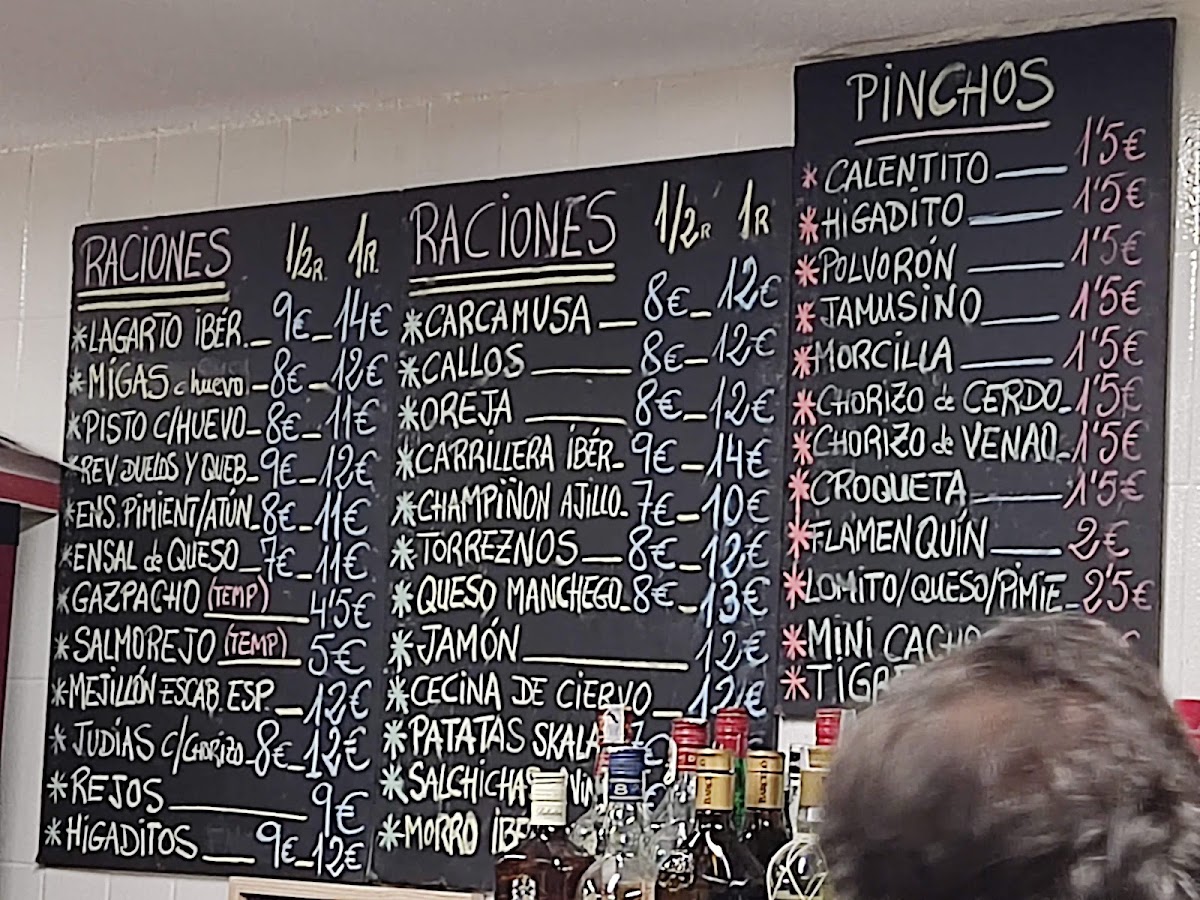 RACIONES 1/2R. 1R.
*LAGARTO IBÉR._ 9€_14€
*MIGAS c huevo_8€_12€
*PISTO C/HUEVO_8€_11€
*REV. DUELOS Y QUEB_9€_12€
*ENS. PIMIENT/ATÚN_8€_11€
*ENSAL de QUESO_7€_11€
*GAZPACHO (TEMP)_4'5€
*SALMOREJO (TEMP)_5€
*MEJILLÓN ESCAB. ESP._12€
*JUDÍAS C/CHORIZO_8€_12€
*REJOS_9€
*HIGADITOS_9€_12€
RACIONES 1/2R 1R
*CARCAMUSA_8€_12€
*CALLOS_8€_12€
*OREJA_8€_12€
*CARRILLERA IBÉR_9€_14€
*CHAMPIÑON AJILLO_7€_10€
*TORREZNOS_8€_12€
*QUESO MANCHEGO_8€_13€
*JAMÓN_12€
*CECINA DE CIERVO_12€
*PATATAS
*SALCHICHAS
*MORRO
PINCHOS
*CALENTITO_1'5€
*HIGADITO_1'5€
*POLVORÓN_1'5€
*JAMUSINO_1'5€
*MORCILLA_1'5€
*CHORIZO de CERDO_1'5€
*CHORIZO de VENAO_1'5€
*CROQUETA_1'5€
*FLAMENQUÍN_2€
*LOMITO/QUESO/PIMIE_2'5€
*MINI
BARCELÓ
BARCELÓ